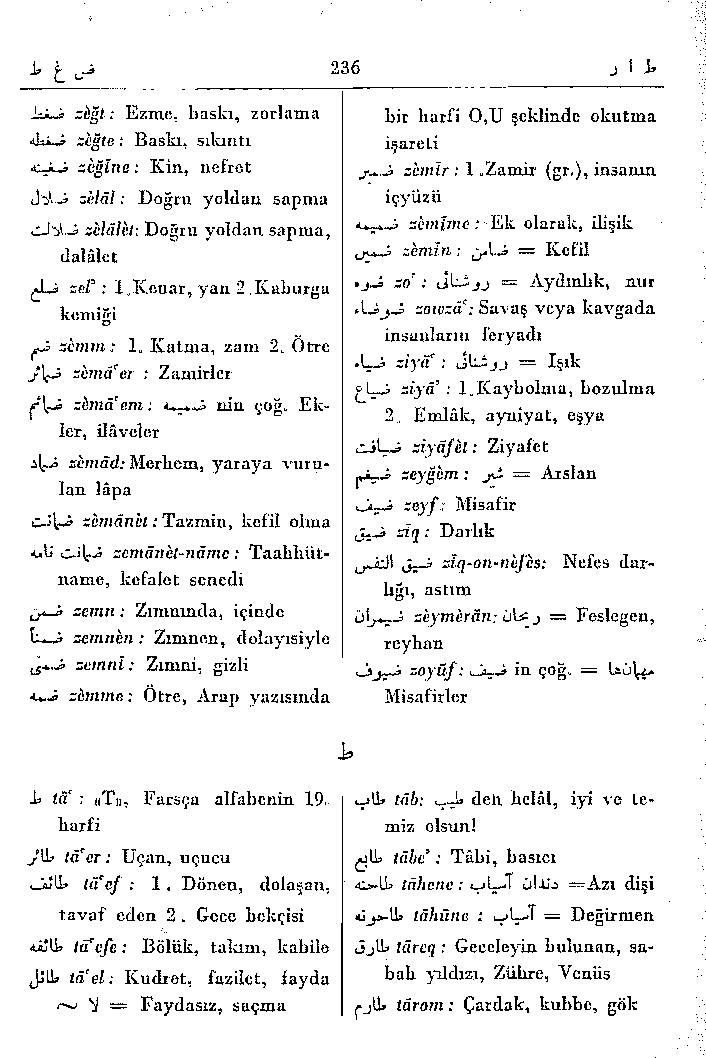 ض غ ط 236 ط أ ر
ضغط zèğt: Ezme, baskı, zorlama
ضغطه zèğte: Baskı, sıkıntı
ضغینه zèğîne: Kin, nefret
ضلال zèlâl: Doğru yoldan sapma
ضلالت zèlâlèt: Doğru yoldan sapma,
dalâlet
ضلع zel' : 1.Kenar, yan 2.Kaburga
kemiği
ضم zèmm: 1. Katma, zam 2. Ötre
ضمائر zèmâ'er : Zamirler
ضمائم zèmâ'em: ضمیمه nin çoğ. Ek-
ler, ilâveler
ضماد zèmâd: Merhem, yaraya vuru-
lan lâpa
ضمانت zèmânèt: Tazmin, kefil olma
ضمانت نامه zemânèt-nâme: Taahhüt-
name, kefalet senedi
ضمن zemn: Zımnında, içinde
ضمناً zemnèn: Zımnen, dolayısiyle
ضمنی zemnî: Zımni, gizli
ضمه zèmme: Ötre, Arap yazısında
bir harfi O,U şeklinde okutma
işareti
ضمیر zèmîr: 1.Zamir (gr.), insanın
içyüzü
ضمیمه zèmîme: Ek olarak, ilişik
ضمین zèmîn: ضامن = Kefil
ضوء zo' : روشنائی = Aydınlık, nur
ضوضاء zowzâ': Savaş veya kavgada
insanların feryadı
ضیاء ziyâ' : روشنائی = Işık
ضیاع ziyâ' : 1.Kaybolma, bozulma
2. Emlâk, ayniyat, eşya
ضیافت ziyâfèt: Ziyafet
ضیغم zeyğèm: شیر = Arslan
ضیف zeyf: Misafir
ضیق zîq: Darlık
ضیق النفس zîq-on-nèfès: Nefes dar-
lığı, astım
ضیمران zèymèrân: ریحان = Feslegen,
reyhan
ضیوف zoyûf: ضیف in çoğ. = مهمانها
Misafirler
ط
ط tâ' : «T», Farsça alfabenin 19.
harfi
طائر tâ'er: Uçan, uçucu
طائف tâ'ef : 1. Dönen, dolaşan,
tavaf eden 2. Gece bekçisi
طائفه tâ'efe: Bölük, takım, kabile
طائل tâ'el: Kudret, fazilet, fayda
لا ~ = Faydasız, saçma
طاب tâb: طیب den helâl, iyi ve te-
miz olsun!
طابع tâbe' : Tâbi, basıcı
طاحنه tâhene: دندان آسیاب =Azı dişi
طاحونه tâhûne : آسیاب = Değirmen
طارق târeq: Geceleyin bulunan, sa-
bah yıldızı, Zühre, Venüs
طارم târom: Çardak, kubbe, gök